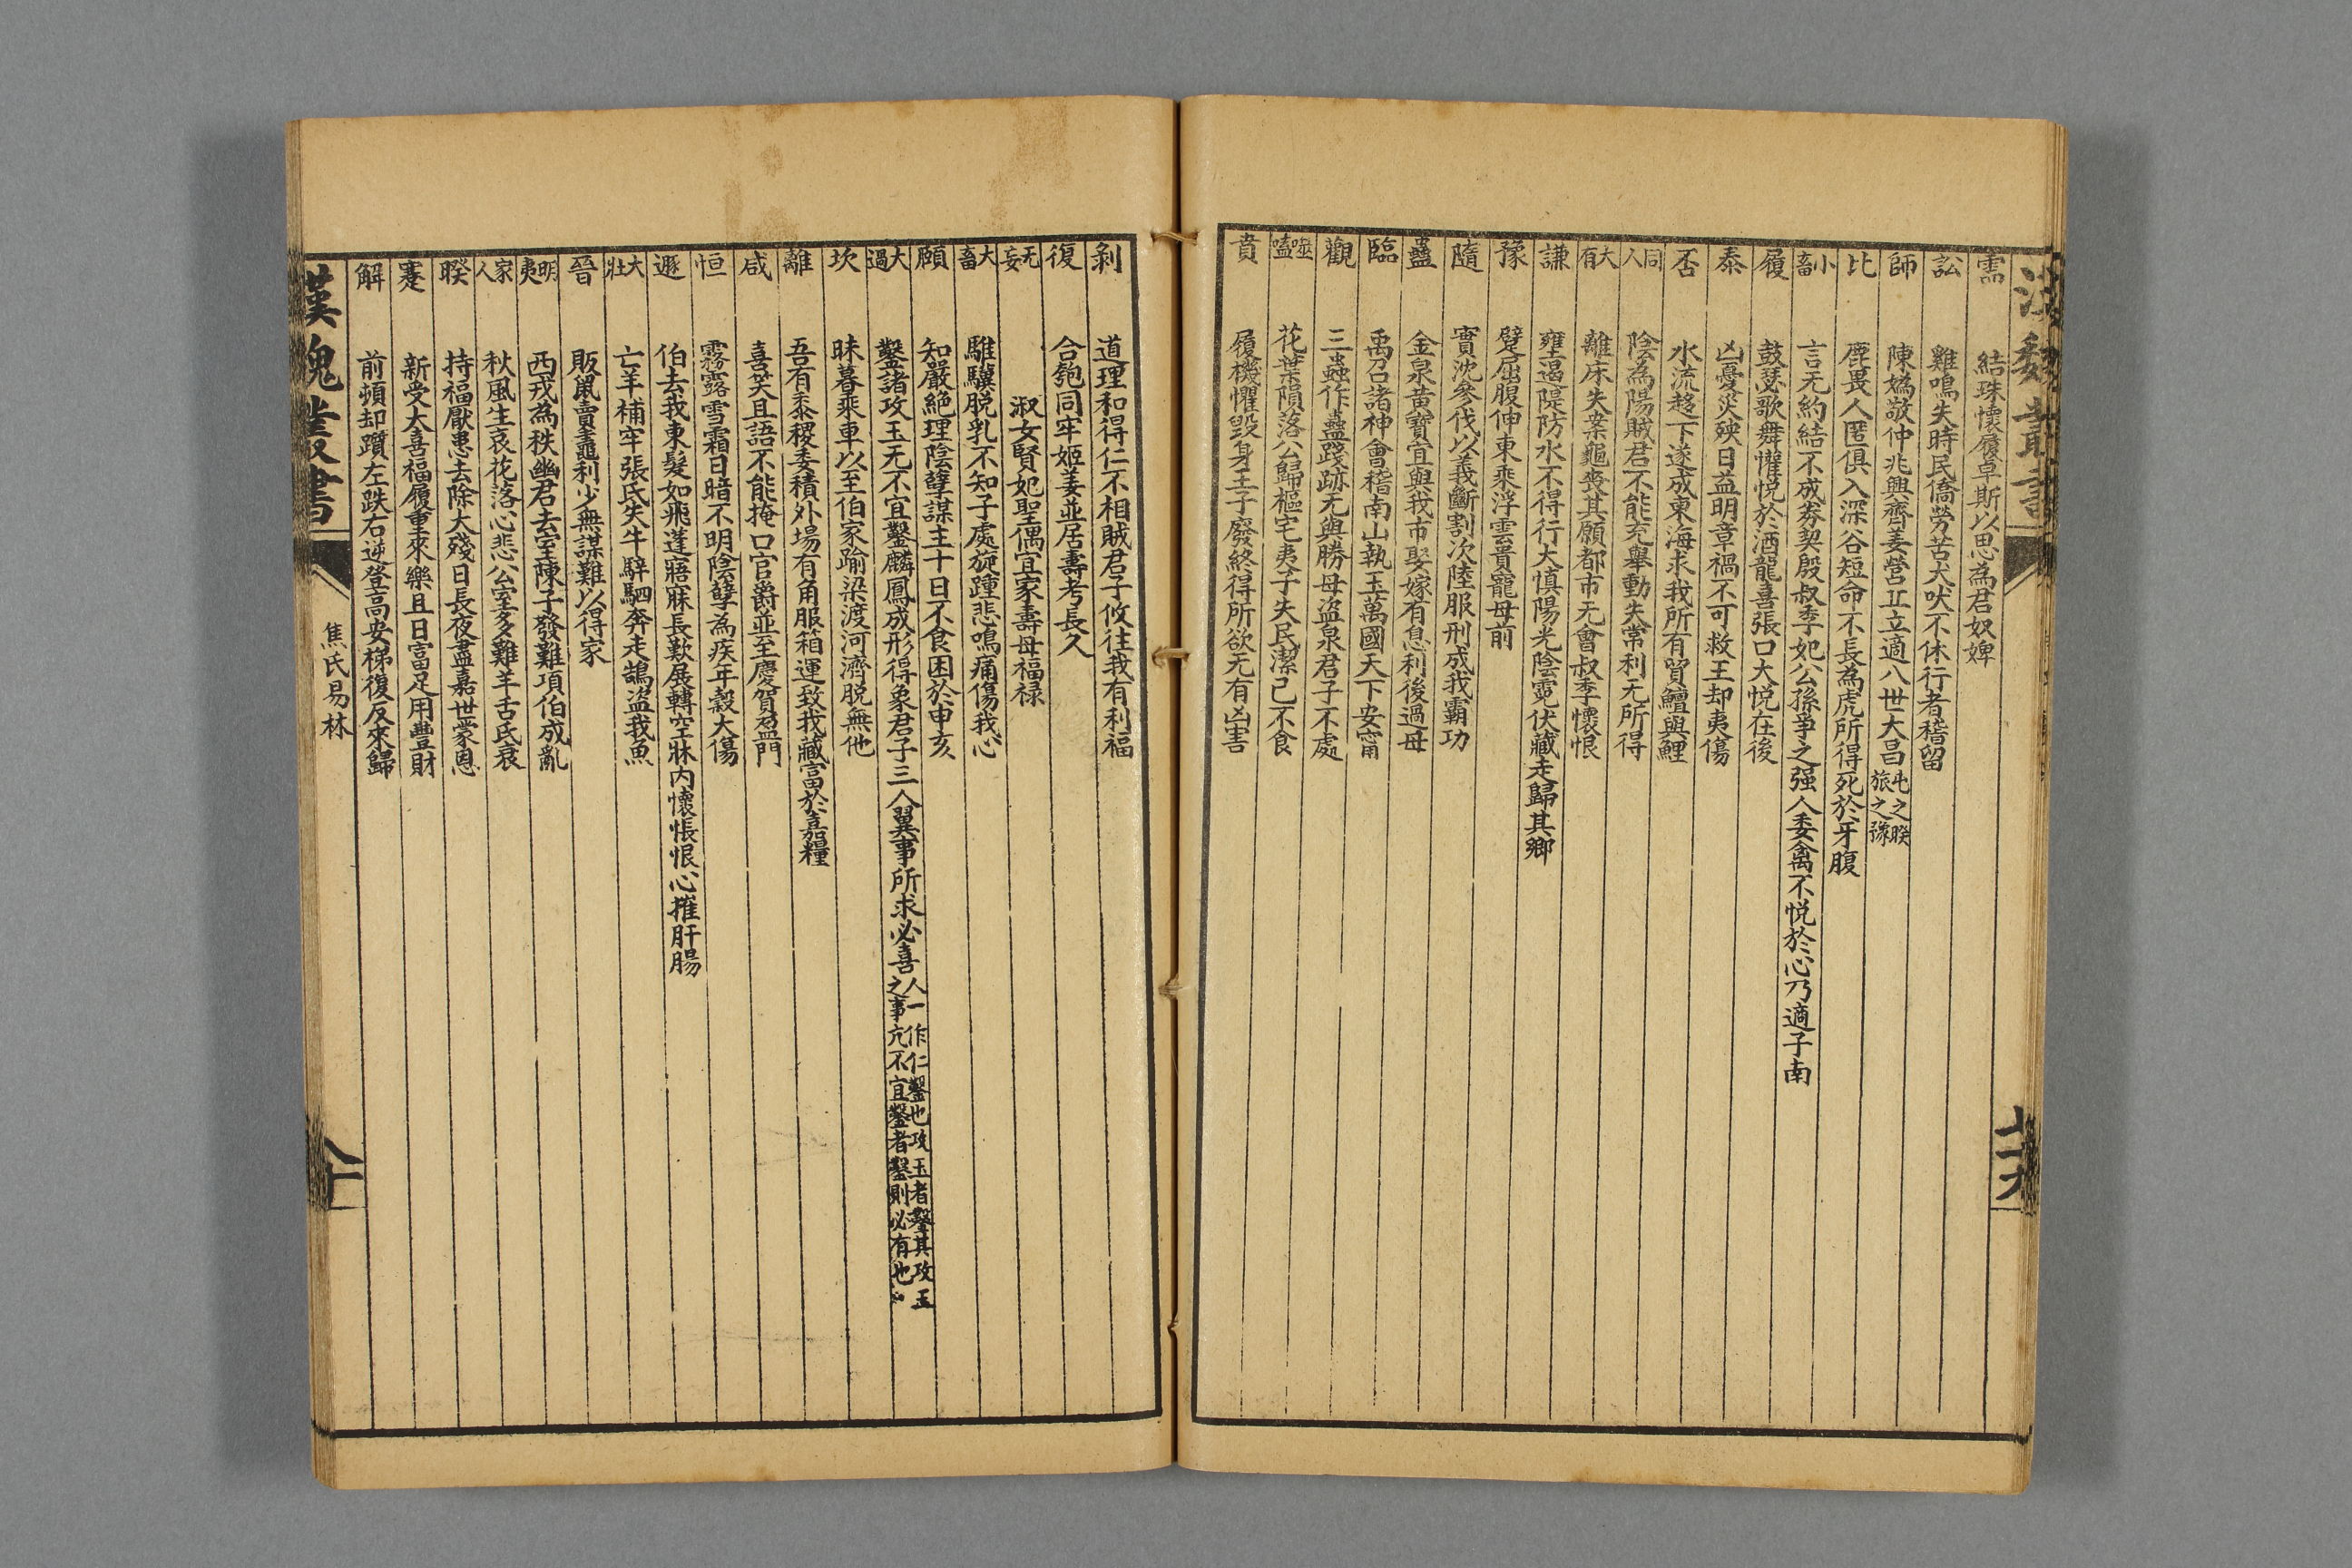 需 結珠懷履卓斯以思為君奴婢
訟 雞鳴失時民僑勞苦犬吠不休行者稽留
師 陳媯敬仲兆興齊姜營丘立適八世大昌 屯之睽旅之豫
比 鹿畏人匿俱入深谷短命不長為虎所得死於牙腹
小畜 言无約結不成券契殷叔季妃公孫爭之强人委禽不悦於心乃適子南
履 鼓瑟歌舞懽悦於酒龍喜張口大悦在後
泰 凶憂災殃日益明章禍不可救王却夷傷
否 水流趍下遂成東海求我所有買鱣與鯉
同人 陰為陽賊君不能克舉動失常利无所得
大有 離床失案龜喪其願都市无會叔季懷恨
謙 壅遏隄防水不得行大慎陽光陰霓伏藏走歸其鄉
豫 躄屈腹伸東乘浮雲貴寵母前
隨 實沈參伐以義斷割次陸服刑成我霸功
蠱 金泉黃寶宜與我市娶嫁有息利後過母
臨 禹召諸神會稽南山執玉萬國天下安甯
觀 三蟲作蠱踐跡无與勝母盜泉君子不處
噬嗑 花葉隕落公歸樞宅夷子失民潔己不食
賁 履機懼毀身王子廢終得所欲无有凶害
剥 道理和得仁不相賊君子攸往我有利福
復 合匏同牢姬姜並居壽考長久
无妄 淑女賢妃聖偶宜家壽母福禄
大畜 騅驥脱乳不知子處旋踵悲鳴痛傷我心
頤 知嚴絶理陰孽謀主十日不食困於申亥
大過 鑿諸攻玉无不宜鑿麟鳳成形得象君子三人翼事所求必喜 人一作仁鑿也攻玉者鑿其攻玉之事亢不宜鑿者鑿則必有也
坎 昧暮乘車以至伯家踰梁渡河濟脱無他
離 吾有黍稷委積外場有角服箱運致我藏富於嘉糧
咸 喜笑且語不能掩口官爵並至慶賀盈門
恒 霧露雪霜日暗不明陰孽為疾年穀大傷
遯 伯去我東髮如飛蓬寤寐長歎展轉空牀内懷悵恨心摧肝腸
大壯 亡羊補牢張氏失牛騂駟奔走鵠盜我魚
晉 販鼠賣鼃利少無謀難以得家
明夷 西戎為秩幽君去室陳子發難項伯成亂
家人 秋風生哀花落心悲公室多難羊舌氏衰
睽 持福厭患去除大殘日長夜盡嘉世蒙恩
蹇 新受大喜福履重來樂且日富足用豐財
解 前頓却躓左跌右逆登高安梯復反來歸
漢魏叢書 焦氏易林 八十